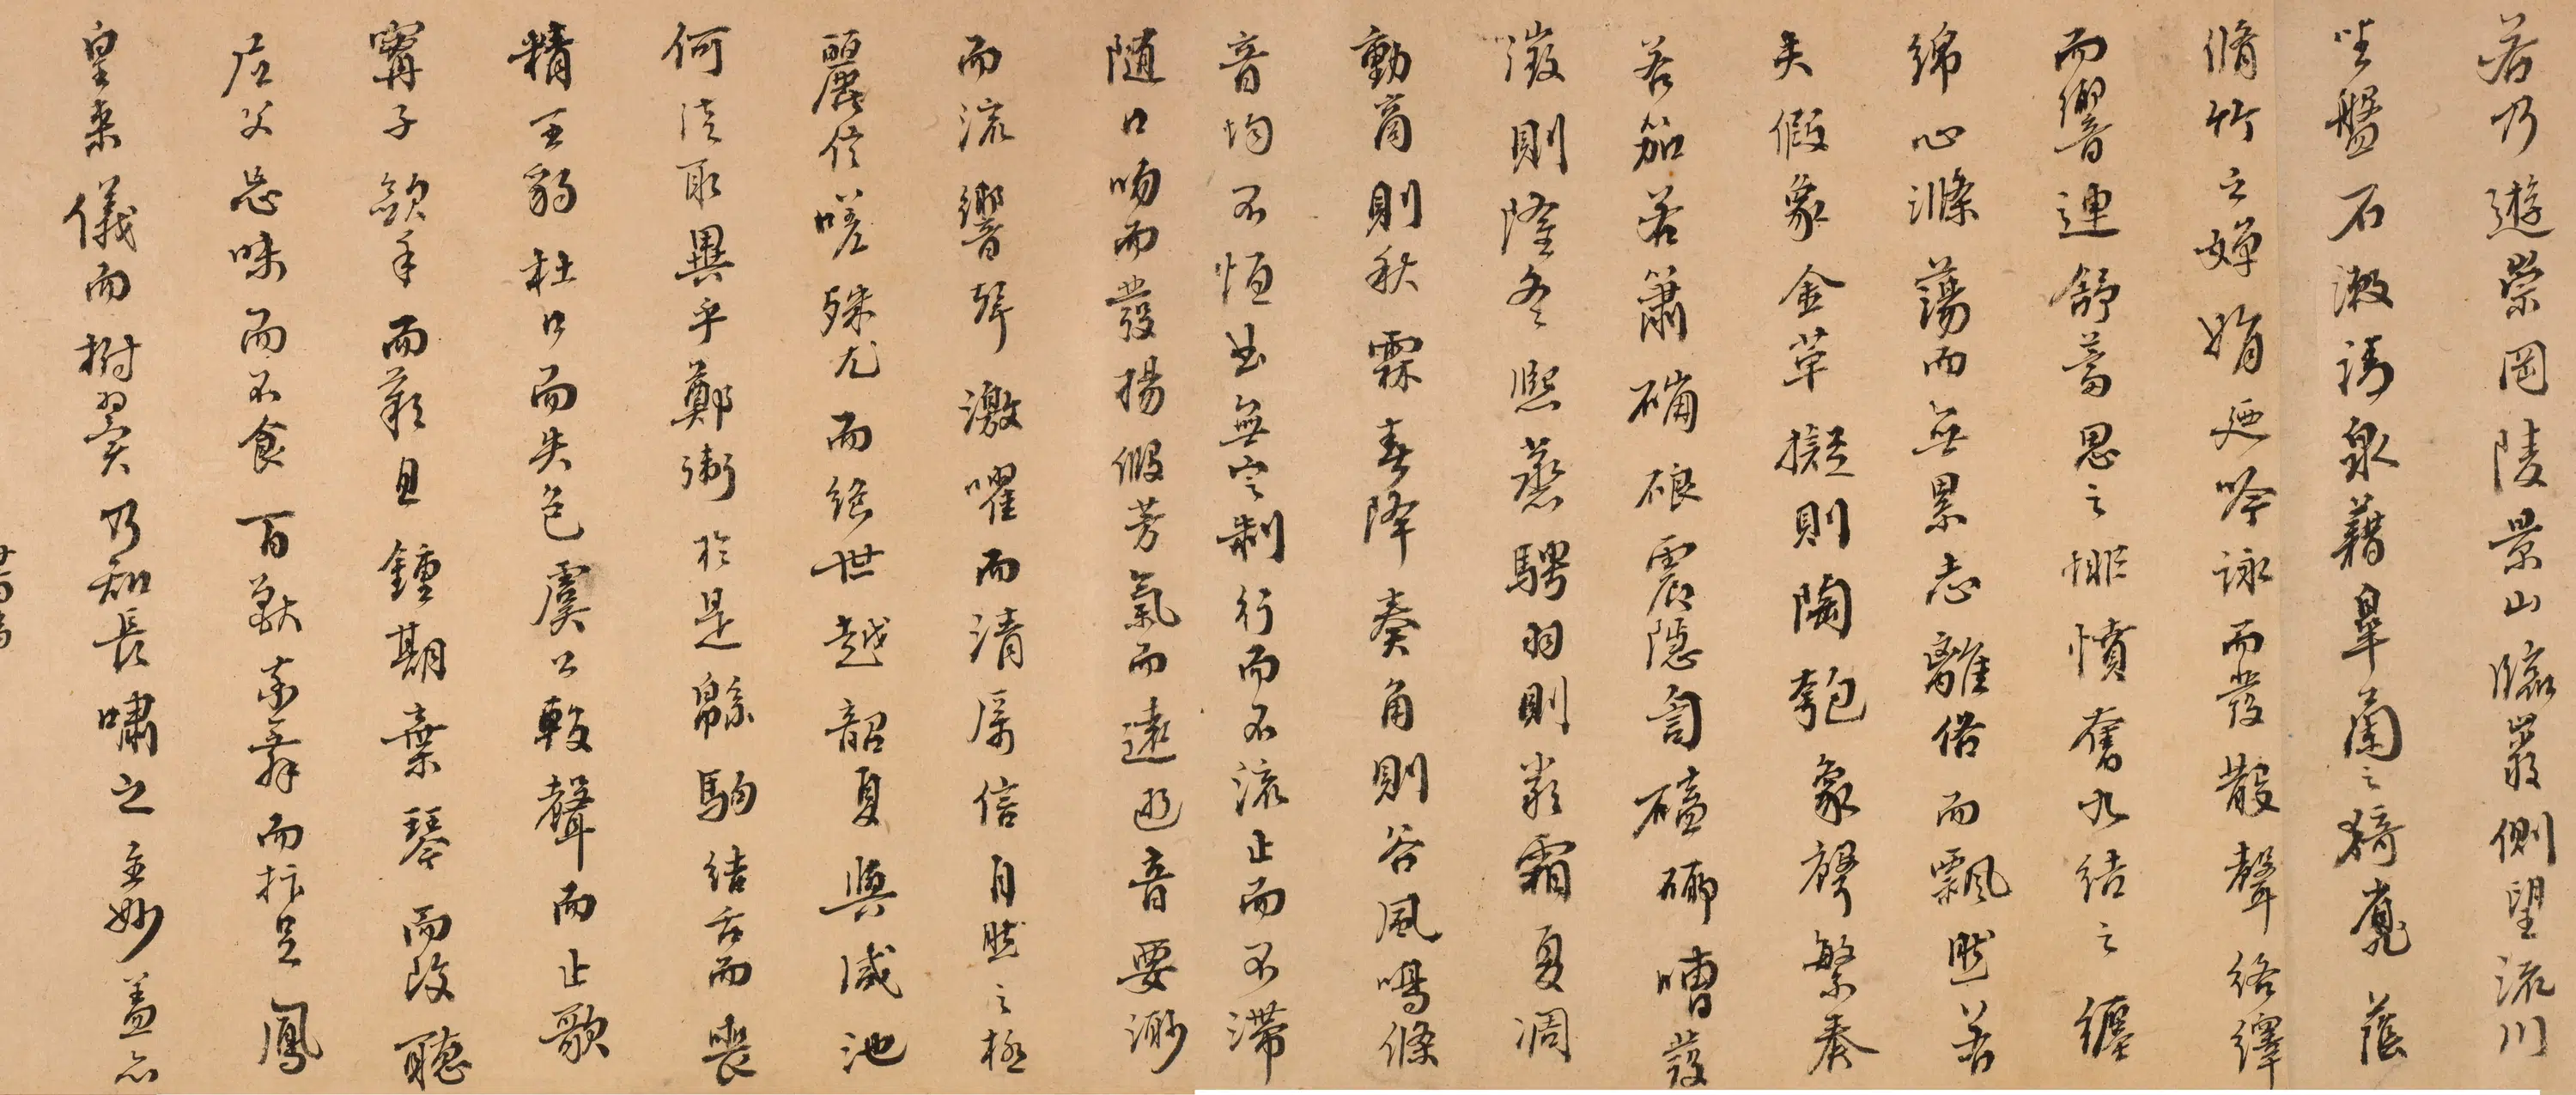 若乃遊崇岡陵景山臨巖側望流川
坐盤石漱清泉藉皋蘭之猗靡蔭
脩竹之嬋娟迺吟詠而發散聲絡繹
而響連舒蓄思之悱憤奮久結之纏
綿心滌蕩而無累志離俗而飄然若
夫假象金革擬則陶匏象聲繁奏
若笳若簫硠震隱訇磕嘈發
徵則隆冬熙蒸騁羽則嚴霜夏凋
動商則秋霖春降奏角則谷風鳴條
音均不恒曲無定制行而不流止而不滯
随口吻而發揚假芳氣而遠逝音要渺
而流響聲激嚁而清厲信自然之極
麗信嗟殊尤而絕世越韶夏與咸池
何徒取異乎鄭衛於是緜駒結舌而喪
精王豹杜口而失色虞公輟聲而止歌
甯子歛手而歎息鍾期棄琴而改聽
尼父忘味而不食百獸率舞而抃足鳳
皇来儀而拊翼乃知長嘯之至妙蓋亦